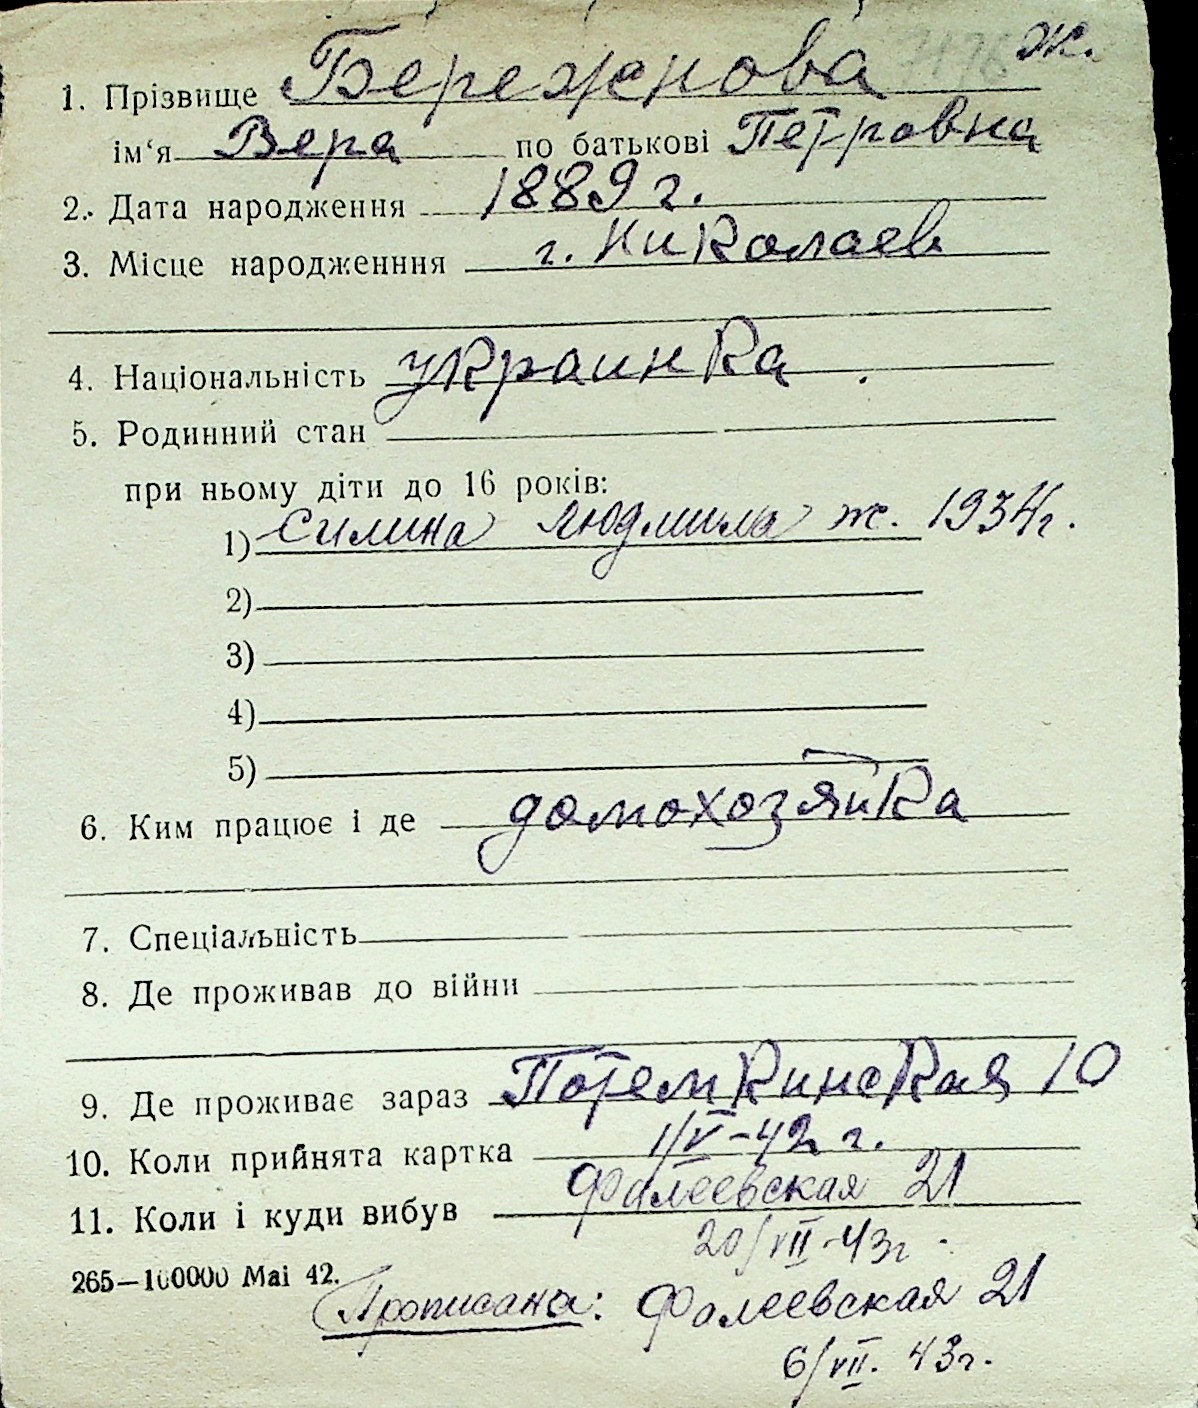 ж.
1. Прізвище Бережнова
ім‘я Вера по батькові Петровна
2. Дата народження 1889 г.
3. Місце народженння г. Николаев
4. Національність украинка
5. Родинний стан
при ньому діти до 16 років:
1) Силина Людмила ж. 1934г.
2)
3)
4)
5)
6. Ким працює і де домохозяйка
7. Спеціальність
8. Де проживав до війни
9. Де проживає зараз Потемкинская 10
10. Коли прийнята картка 1/V-42 г.
11. Коли і куди вибув Фалеевская 21
20/VII-43г.
265—100000 Mai 42.
Прописана: Фалеевская 21
6/VII. 43г.